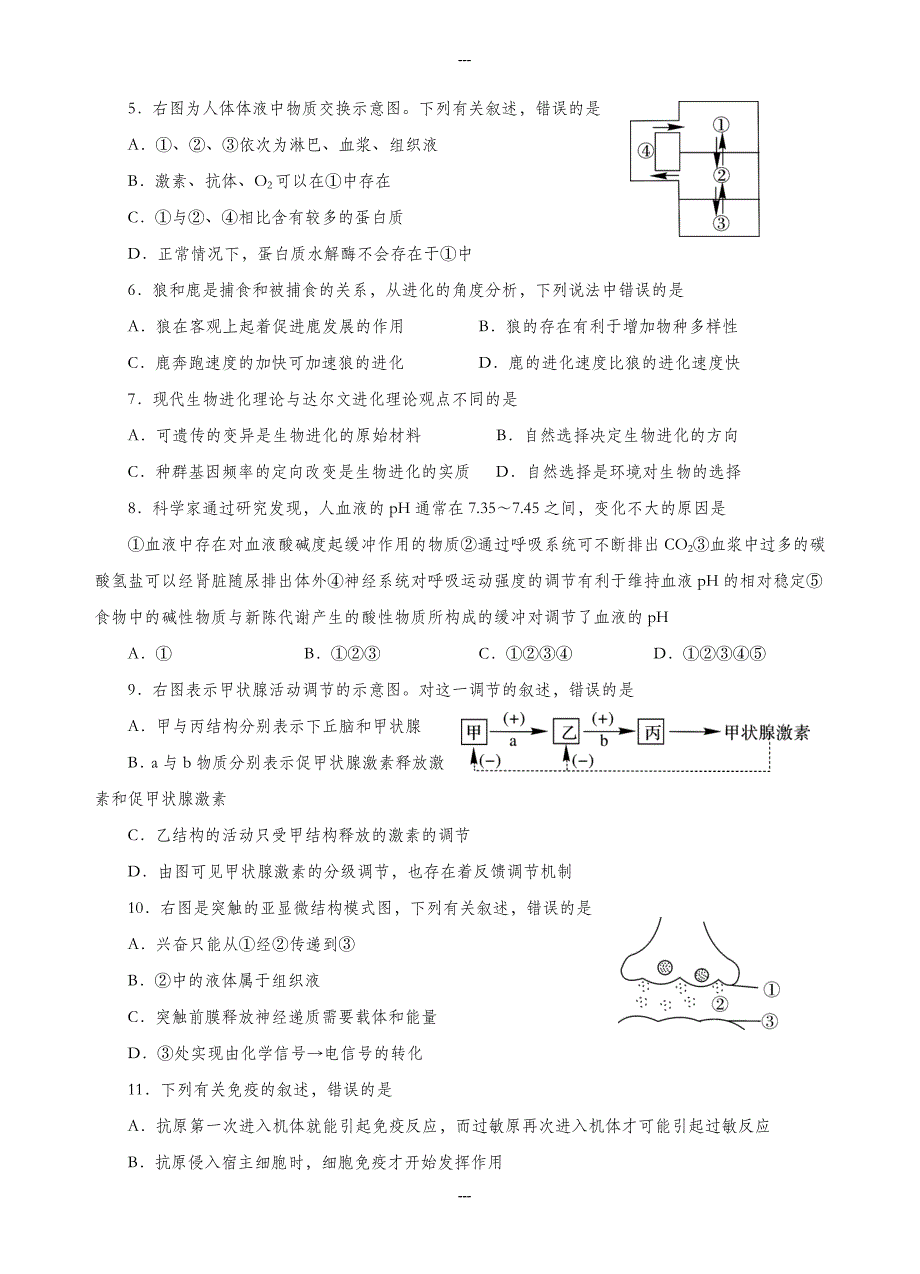 ---
5．右图为人体体液中物质交换示意图。下列有关叙述，错误的是
A．①、②、③依次为淋巴、血浆、组织液
B．激素、抗体、O2可以在①中存在
C．①与②、④相比含有较多的蛋白质
D．正常情况下，蛋白质水解酶不会存在于①中
①
④
②
③
6．狼和鹿是捕食和被捕食的关系，从进化的角度分析，下列说法中错误的是
A．狼在客观上起着促进鹿发展的作用 B．狼的存在有利于增加物种多样性
C．鹿奔跑速度的加快可加速狼的进化 D．鹿的进化速度比狼的进化速度快
7．现代生物进化理论与达尔文进化理论观点不同的是
A．可遗传的变异是生物进化的原始材料 B．自然选择决定生物进化的方向
C．种群基因频率的定向改变是生物进化的实质 D．自然选择是环境对生物的选择
8．科学家通过研究发现，人血液的 pH 通常在 7.35～7.45 之间，变化不大的原因是
①血液中存在对血液酸碱度起缓冲作用的物质②通过呼吸系统可不断排出 CO2③血浆中过多的碳
酸氢盐可以经肾脏随尿排出体外④神经系统对呼吸运动强度的调节有利于维持血液 pH 的相对稳定⑤
食物中的碱性物质与新陈代谢产生的酸性物质所构成的缓冲对调节了血液的 pH
A．① B．①②③ C．①②③④ D．①②③④⑤
9．右图表示甲状腺活动调节的示意图。对这一调节的叙述，错误的是
A．甲与丙结构分别表示下丘脑和甲状腺
B．a 与 b 物质分别表示促甲状腺激素释放激
素和促甲状腺激素
C．乙结构的活动只受甲结构释放的激素的调节
D．由图可见甲状腺激素的分级调节，也存在着反馈调节机制
甲 (+) a 乙 (+) b 丙 甲状腺激素
(−) (−)
10．右图是突触的亚显微结构模式图，下列有关叙述，错误的是
A．兴奋只能从①经②传递到③
B．②中的液体属于组织液
C．突触前膜释放神经递质需要载体和能量
D．③处实现由化学信号→电信号的转化
①
②
③
11．下列有关免疫的叙述，错误的是
A．抗原第一次进入机体就能引起免疫反应，而过敏原再次进入机体才可能引起过敏反应
B．抗原侵入宿主细胞时，细胞免疫才开始发挥作用
---